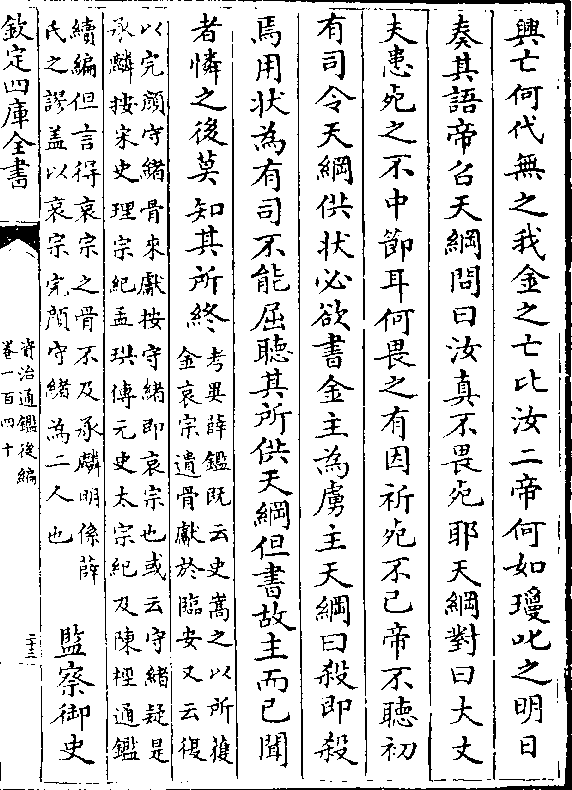 興亡何代無之我金之亡比汝二帝何如瓊叱之明日
奏其語帝召天綱問曰汝真不畏死耶天綱對曰大丈
夫患死之不中節耳何畏之有因祈死不已帝不聽初
有司令天綱供狀必欲書金主為虜主天綱曰殺即殺
焉用狀為有司不能屈聽其所供天綱但書故主而已聞
者憐之後莫知其所終
考異薛鑑既云史嵩之以所獲
金哀宗遺骨獻於臨安又云復
以完顔守緒骨來獻按守緒即哀宗也或云守緒疑是
承麟按宋史理宗紀孟珙傳元史太宗紀及陳桱通鑑
續編但言得哀宗之骨不及承麟明係薛
氏之謬蓋以哀宗完顔守緒為二人也
監察御史
欽定四庫全書
資治通鑑後編
卷一百四十
二十三